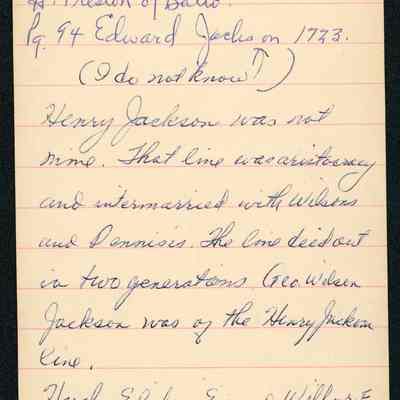 Preston of Balto.
Pg. 94 Edward Jackson 1723.
(I do not know ↑)
Henry Jackson was not
mine. That line was aristocracy
and intermarried with Wilsons
and Dennisis. The line died out
in two generations. Geo. Wilson
Jackson was of the Henry Jackson
Line.